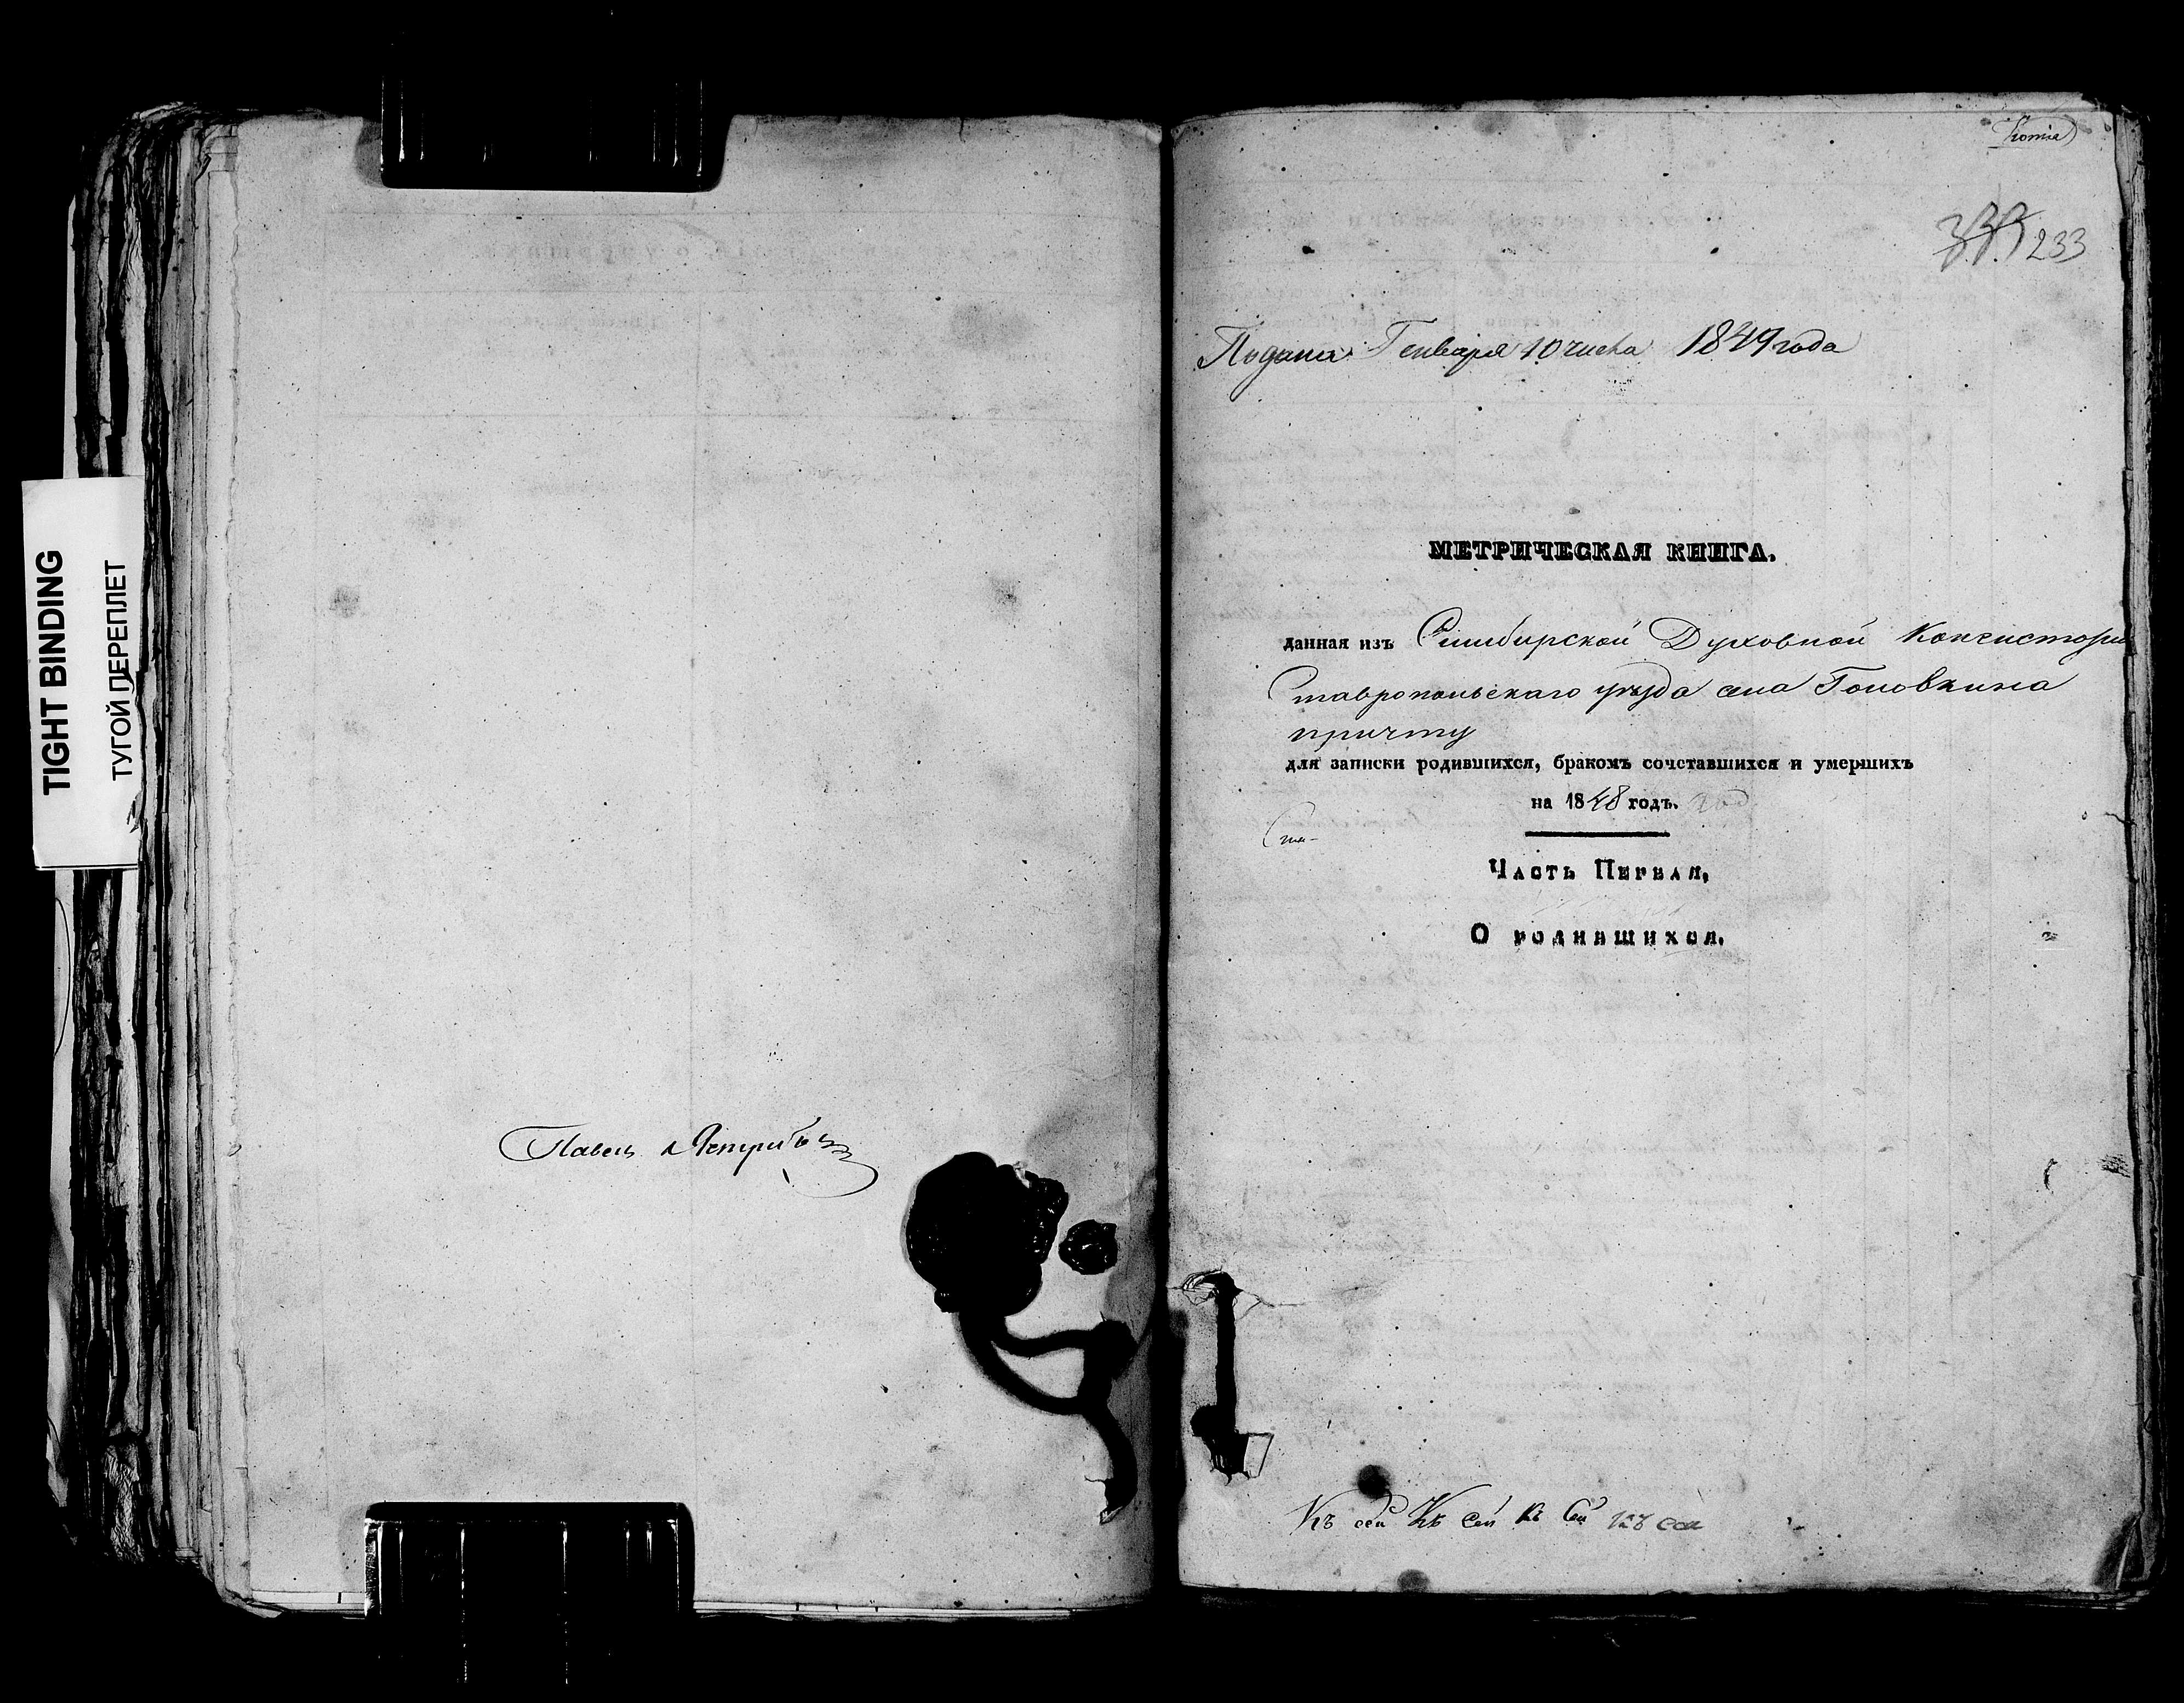 TIGHT BINDING
ТУГОЙ ПЕРЕПЛЕТ
Павелъ
Копія
233
Подана Генваря 10 числа 1849 года
МЕТРИЧЕСКАЯ КНИГА,
данная изъ Симбирской Духовной Консисторіи
Ставропольскаго уѣзда села Головкина
причту
для записки родившихся, бракомъ сочетавшихся и умершихъ
на 1848 годъ.
Часть Первая,
О родившихся.
Къ сей Къ сей Къ Сей Къ сей